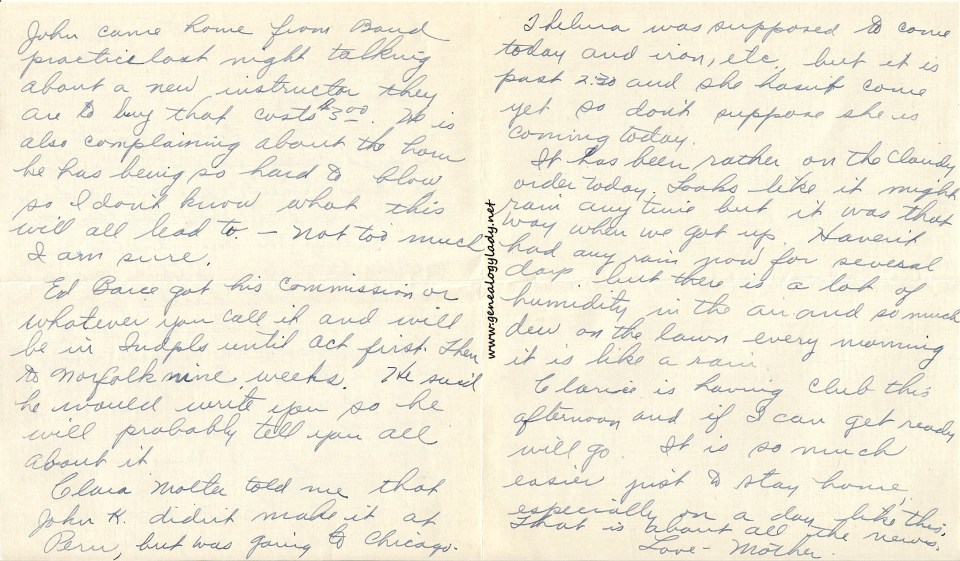 John came home from Band
practice last night talking
about a new instructor they
are to buy that costs $3.00. He is
also complaining about the horn
he has being so hard to blow
so I don't know what this
will all lead to. – Not too much
I am sure.
Ed Barce got his commission or
whatever you call it and will
be in Indpls until Oct first. Then
to Norfolk nine weeks. He said
he would write you so he
will probably tell you all
about it.
Clara Molter told me that
John K. didn't make it at
Peru, but was going to Chicago.
Thelma was supposed to come
today and iron, etc. but it is
past 2:30 and she hasn't come
yet so don't suppose she is
coming today.
It has been rather on the cloudy
order today. Looks like it might
rain any time but it was that
way when we got up. Haven't
had any rain now for several
days but there is a lot of
humidity in the air and so much
dew on the lawn every morning
it is like a rain.
Clarice is having club this
afternoon and if I can get ready
will go. It is so much
easier just to stay home,
especially on a day like this.
That is about all the news.
Love – Mother.
www.genealogylady.net